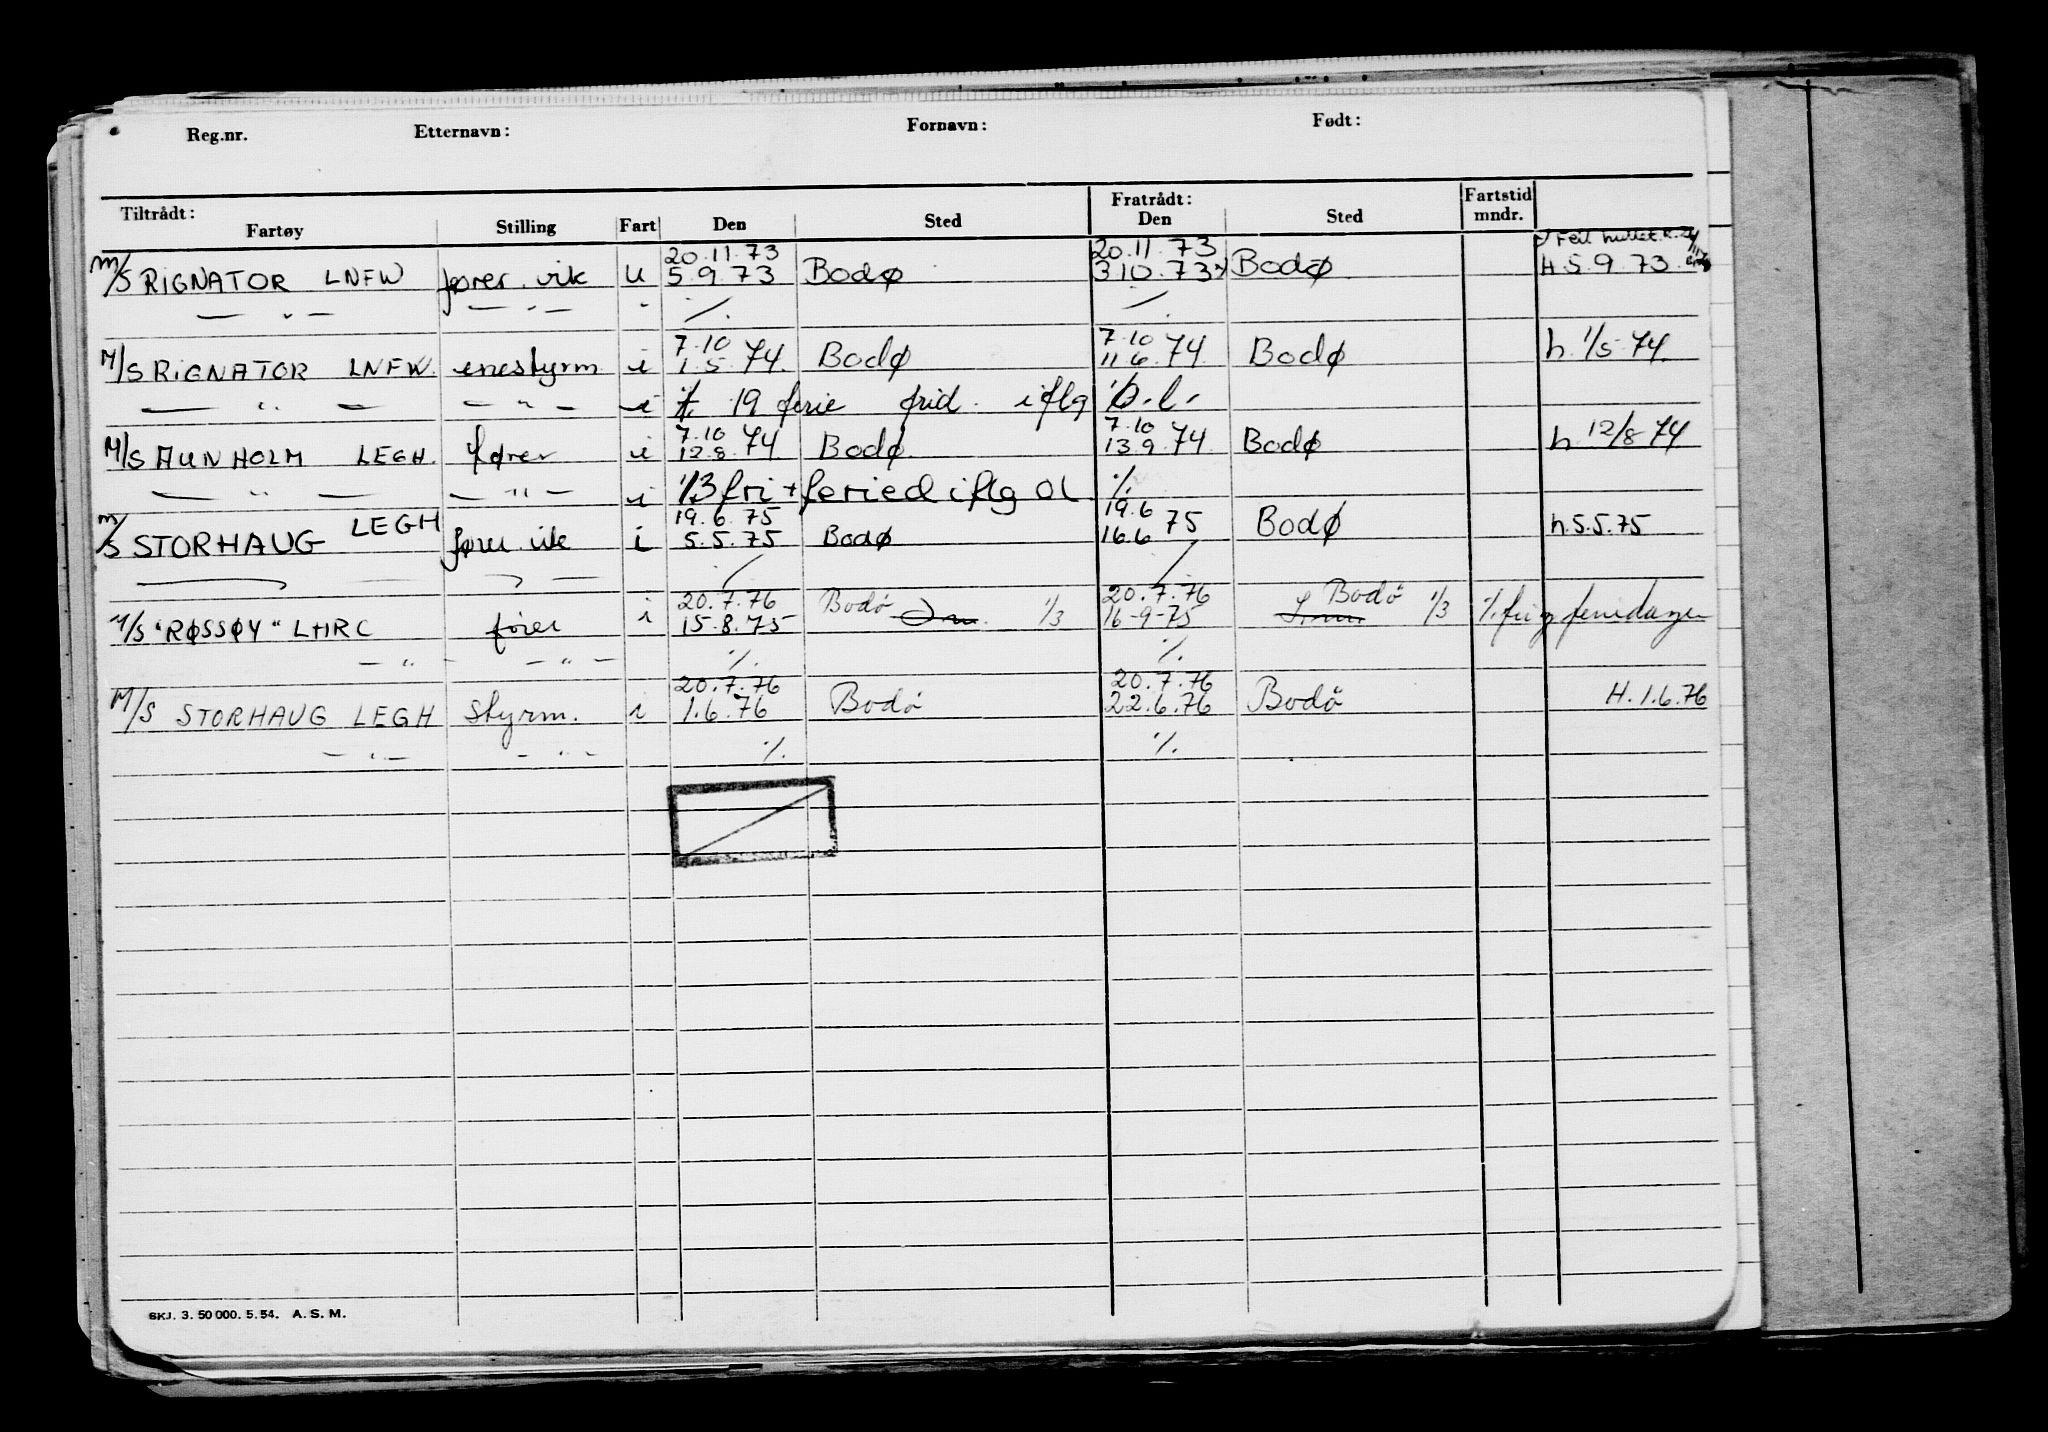 Reg.nr. Etternavn: Fornavn: Født:
Tiltrådt: Fratrådt: Fartstid
Fartøy Stilling Fart Den Sted Den Sted mndr.
20.11.73 20.11.73 Feil
M/S RIGNATOR LNFW fører vik u 5.9.73 Bodø 3 10.73 Bodø H.5.9.73
— " — — " — " ·/. ·/.
7.10 7.10
M/S RIGNATOR LNFW. enestyrm i 1.5.74. Bodø 11.6.74. Bodø h. 1/5 74.
— " — — " — i ·/. 19 ferie frid. iflg o.l.
7.10 7.10
M/S AUNHOLM LEGH. fører i 12.8.74 Bodø 13.9.74 Bodø h 12/8 74
— " — — " — i ·/. 3 fri + feried iflg OL ·/.
19.6.75 19.6
M/S STORHAUG LEGH fører vik i 5.5.75 Bodø 16.6 75 Bodø h.5.5.75
20.7.76 20.7.76
M/S "RØSSØY" LHRC fører i 15.8.75 Bodø 1/3 16-9-75 Bodø 1/3 ·/. fri og feriedager
— " — — " — ·/. ·/.
20.7.76 20.7.76
M/S STORHAUG LEGH styrm. i 1.6.76 Bodø 22.6.76 Bodø H.1.6.76
— " — — " — ·/. ·/.
SKJ. 3. 50 000. 5. 54. A. S. M.